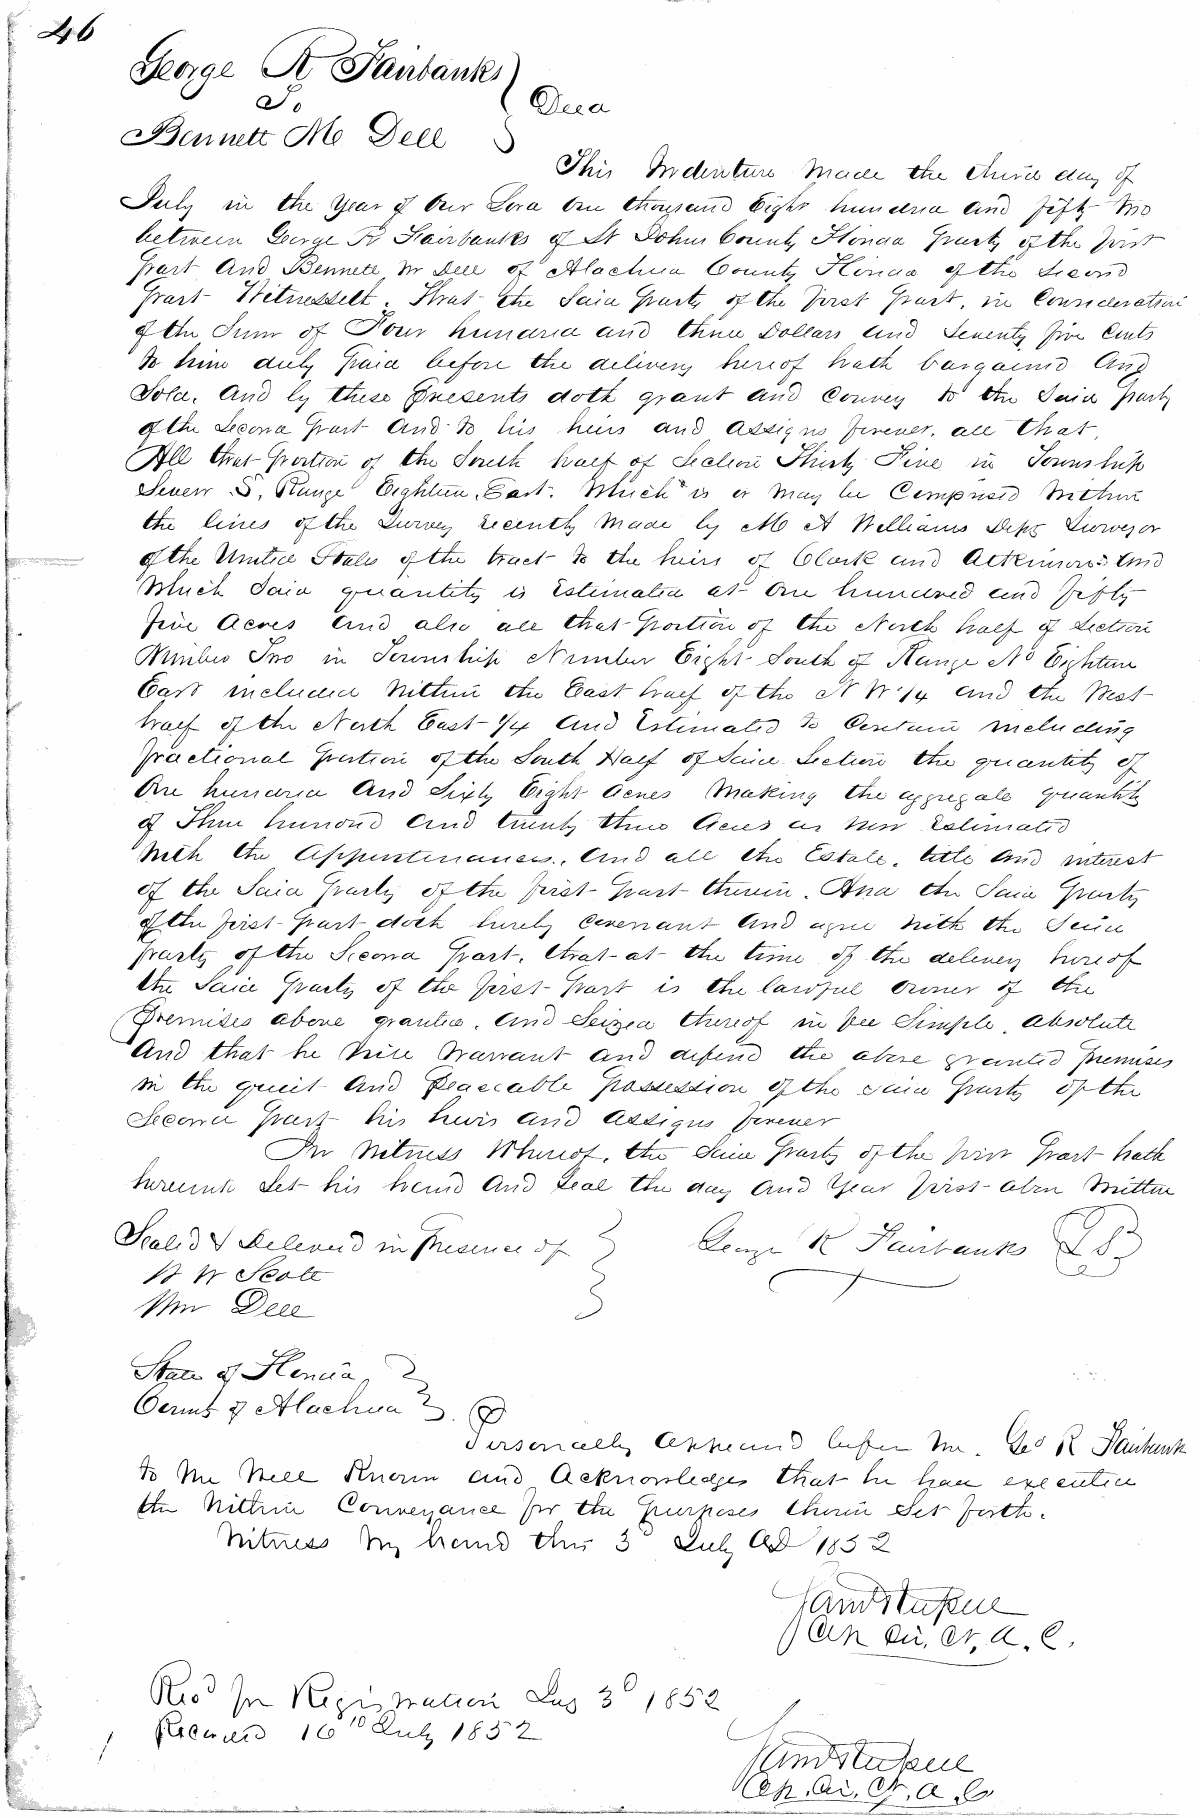 46
George R Fairbanks
To
Deed
Bennett M Dell
This Indenture made the third day of
July in the Year of Our Lord One thousand Eight hundred and fifty two
between George R Fairbanks of St Johns County Florida party of the first
part and Bennett M Dell of Alachua County Florida of the second
part Witnesseth. That the Said party of the first part, in Consideration
of the Sum of Four hundred and three Dollars and Seventy five Cents
to him duly paid before the delivery hereof hath bargained and
Sold. And by these Presents doth grant and Convey to the Said party
of the Second part and to his heirs and assigns forever. all that.
All that portion of the South half of Section Thirty Five in Township
Seven S. Range Eighteen, East. Which is or may be Comprised within
the lines of the Survey recently made by M A Williams Dept Surveyor
of the United States of the tract to the heirs of Clark and Atkinson and
Which Said quantity is Estimated at One hundred and fifty
five Acres and also all that portion of the North half of Section
Number Two in Township Number Eight South of Range No Eighteen
East included within the East half of the N W 1/4 and the West
half of the North East 1/4 and Estimated to Contain including
fractional portion of the South Half of Said Section the quantity of
One hundred and Sixty Eight acres Making the aggregate quantity
of Three hundred and twenty three Acres as now Estimated
With the Appurtenances. And all the Estate. title and interest
of the Said Party of the first part therein. And the Said Party
of the first part doth hereby covenant and agree with the Said
party of the Second part, that at the time of the delivery hereof
the Said party of the first part is the lawful owner of the
Premises above granted. And Seized thereof in fee Simple absolute
And that he will Warrant and defend the above granted premises
in the quiet and Peaceable possession of the said party of the
Second part his heirs and assigns forever
In Witness Whereof, the Said Party of the first Part hath
hereunto Set his hand and Seal the day and Year first above Written
Sealed & Delivered in Presence of
George R Fairbanks
W W Scott
Wm Dell
State of Florida
County of Alachua
Personally appeared before me. Geo R Fairbanks
to me Well Known and Acknowledges that he had executed
the Within Conveyance for the purposes therein Set forth.
Witness my hand this 3d July AD 1852
Clk Cir. Ct. A. C.
Recd for Registration July 3d 1852
Recorded 16th July 1852
Clk. Cir. Ct. A. C.